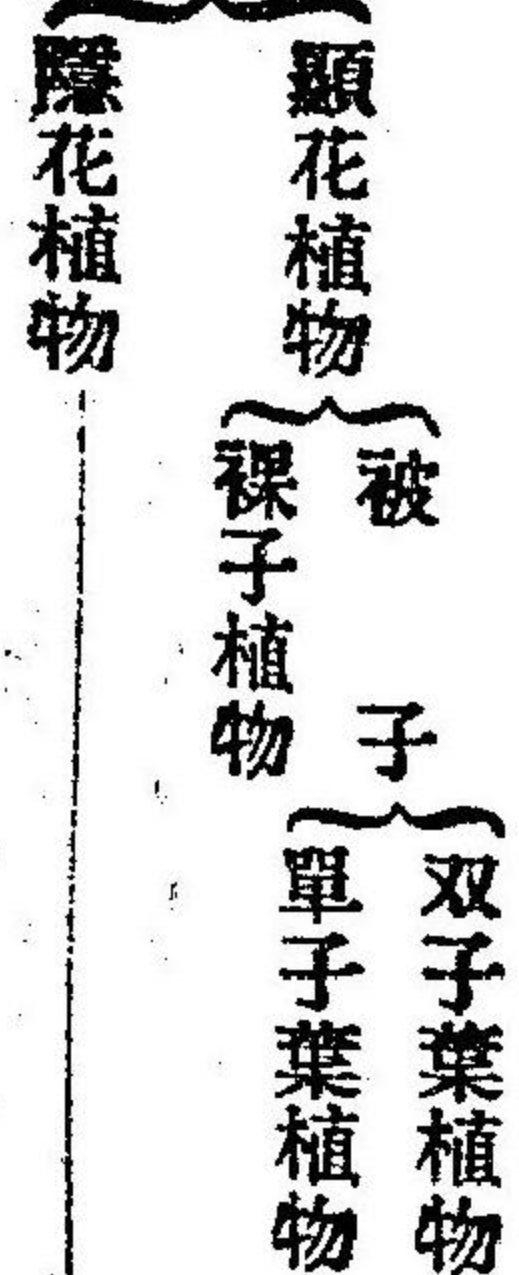 顯花植物
被子
双子葉植物
單子葉植物
裸子植物
隱花植物